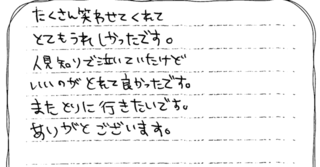 たくさん笑わせてくれて
とてもうれしかったです。
人見知りで泣いていたけど
いいのがとれて良かったです。
またとりに行きたいです。
ありがとございます。